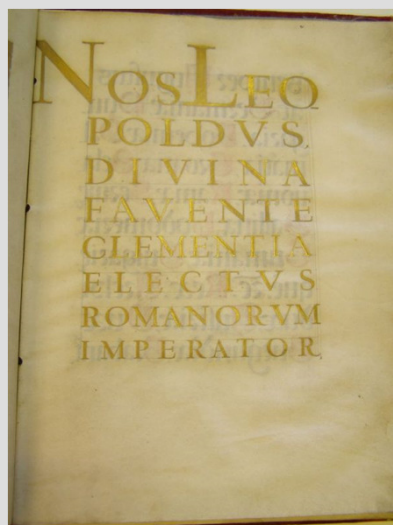 NOS LEO
POLDVS.
DIVINA
FAVENTE
CLEMENTIA
ELECTVS
ROMANORVM
IMPERATOR.